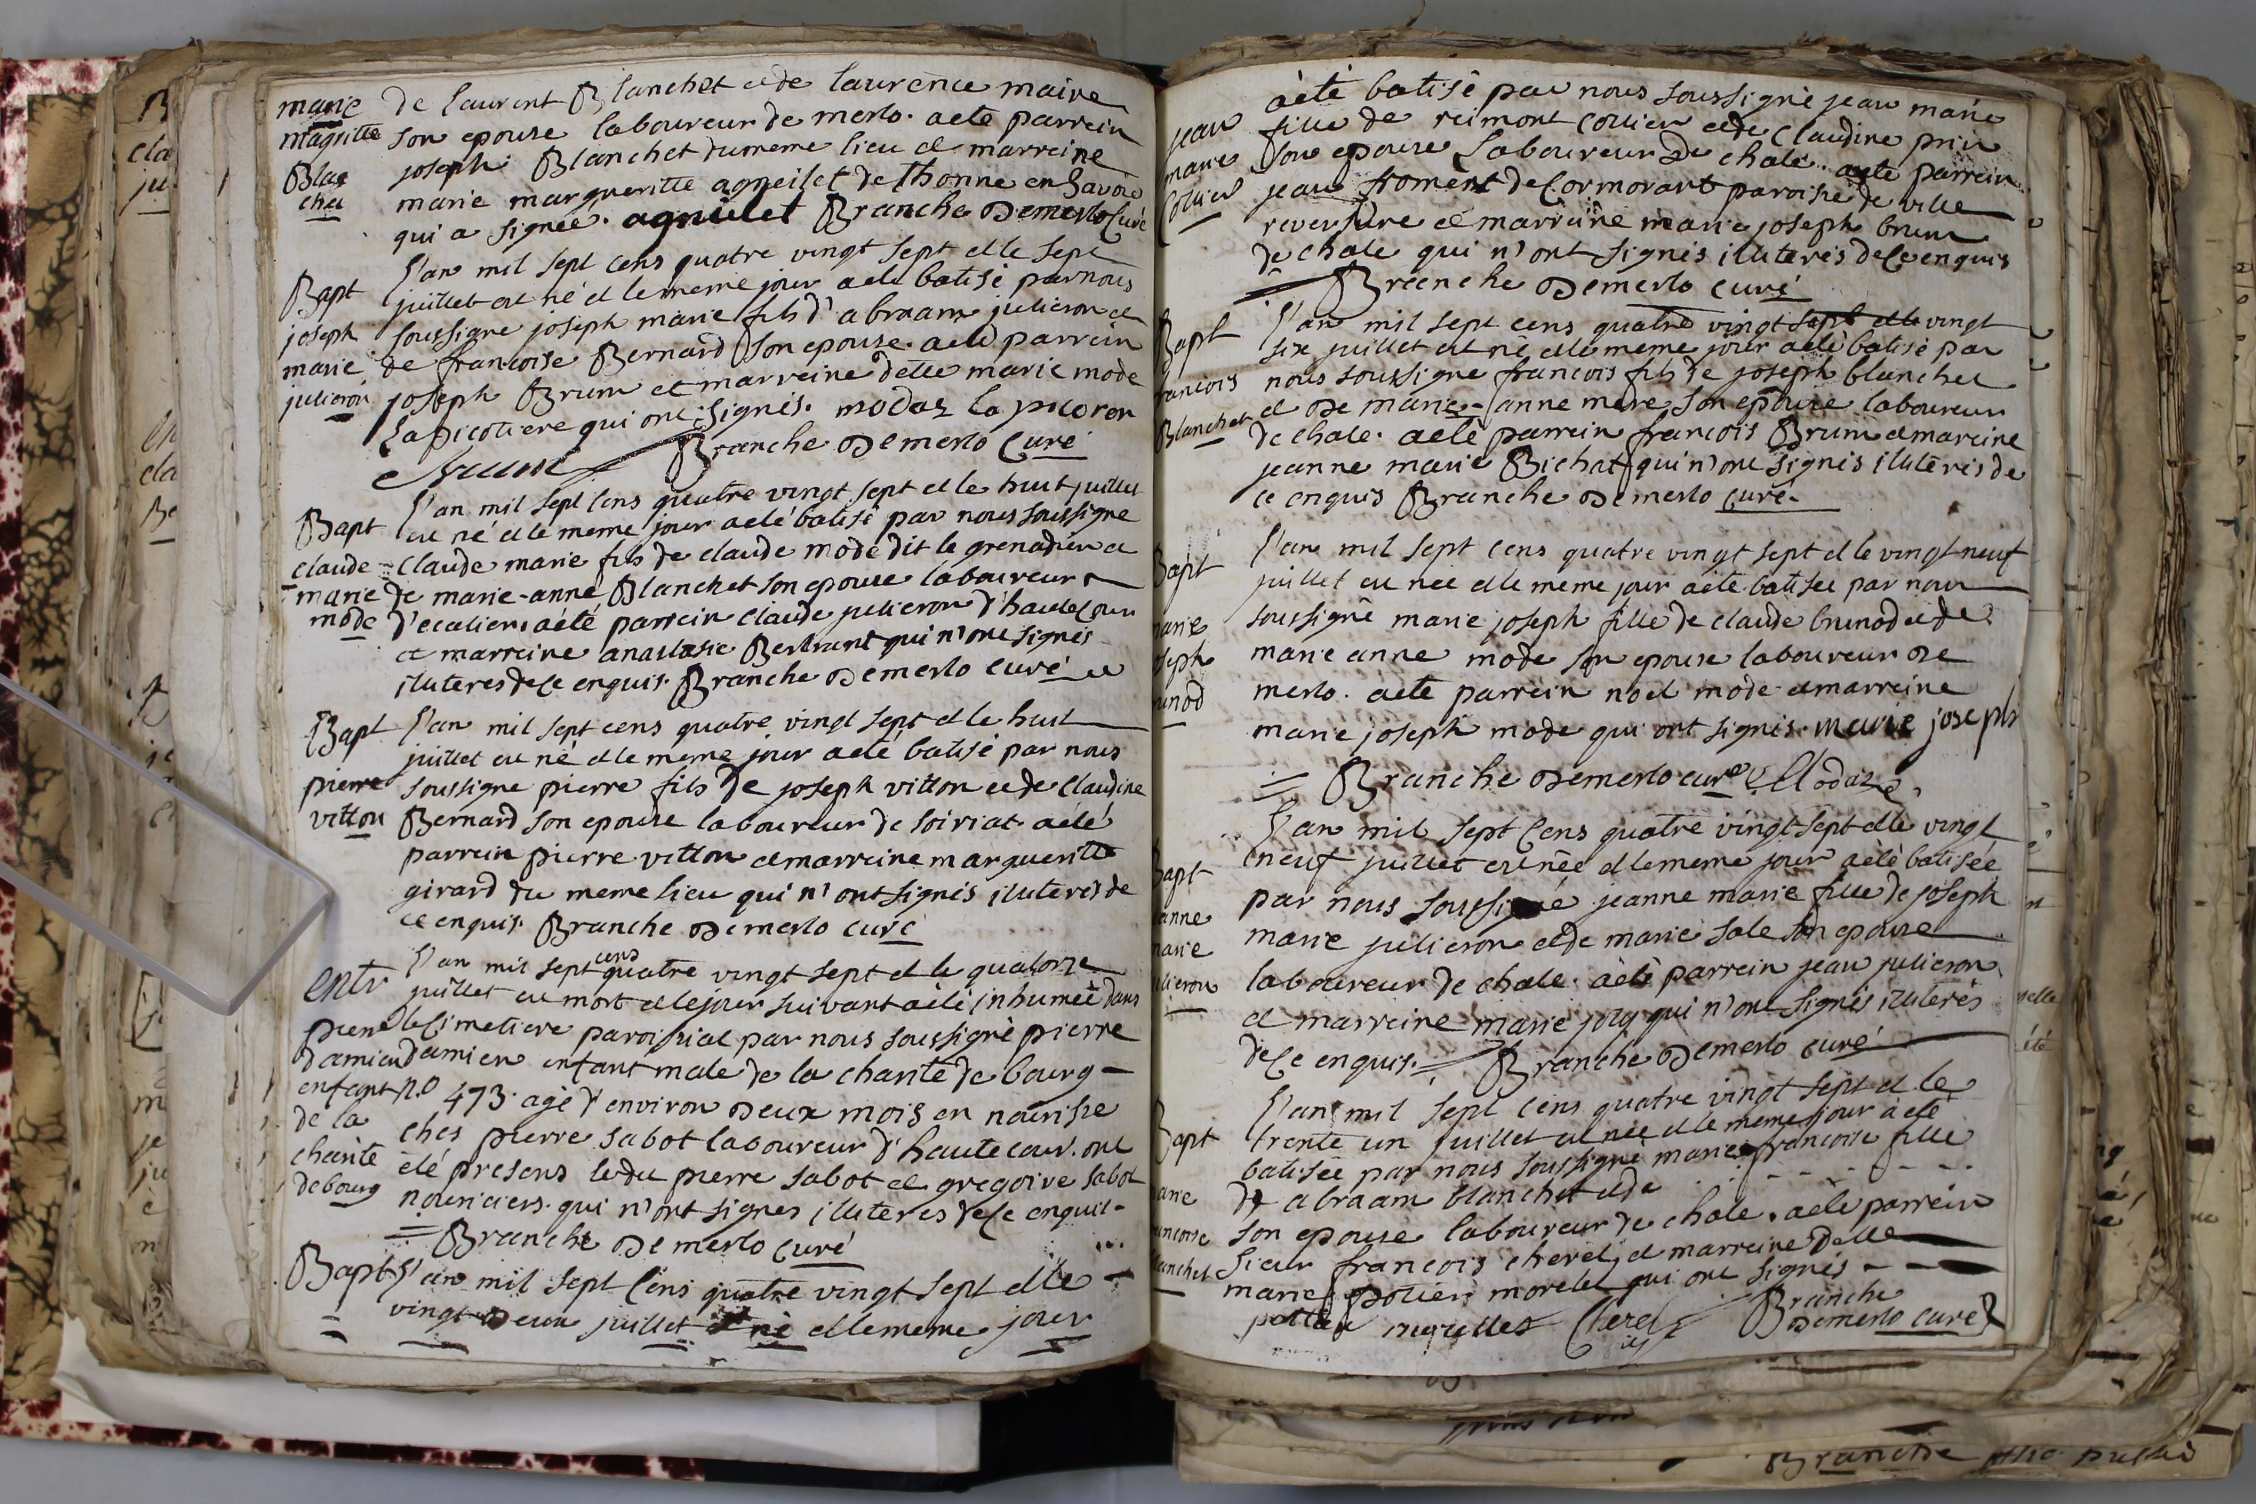 marie
magritte
Blac
chet
de laurent Blanchet et de laurence maire
son epouse laboureur de merlo. a ete parrein
joseph Blanchet du meme lieu et marreine
marie margueritte agneilet de Thonne en Savoie
qui a signée. agnielet Branche Demerlo Curé
Bapt
joseph
marie
julieron
l'an mil sept cens quatre vingt sept et le sept
juillet est né et le meme jour a eté batisé par nous
soussigne joseph marie fils d'abraam julieron et
de francoise Bernard son epouse. a eté parrein
joseph Brum et marreine dette marie mode
la picotiere qui ont signés. modas la picoron
Brum Branche Demerlo Curé
Bapt
claude
marie
mode
l'an mil sept cens quatre vingt sept et le huit juillet
est né et le meme jour a eté batisé par nous soussigne
claude marie fils de claude mode dit le grenadier et
de marie-anne Blanchet son epouse laboureur
d'ecaliers a été parrein claude julieron d'hautecour
et marreine anastasie Bertrant qui n'ont signés
illuteres de ce enquis. Branche Demerlo curé
Bapt
pierre
vitton
l'an mil sept cens quatre vingt sept et le huit
juillet est né et le meme jour a eté batisé par nous
soussigne pierre fils de joseph vitton et de claudine
Bernard son epouse laboureur de soiriat a eté
parrein pierre vitton et marreine margueritte
girard du meme lieu qui n'ont signés illuterés de
ce enquis. Branche Demerlo curé
entr
pierre
damien
enfant
de la
charite
de bourg
l'an mil sept cens quatre vingt sept et le quatorze
juillet est mort et le jour suivant a eté inhumée dans
le Cimetiere paroissial par nous soussigné pierre
damien enfant male de la charite de bourg
n.o 473. agé d'environ deux mois en nourisse
ches pierre sabot laboureur d'haute cour. ont
été presens ledu pierre sabot et gregoire sabot
nouriciers. qui n'ont signes illuteres de ce enquis
Branche Demerlo curé
Bapt
l'an mil sept cens quatre vingt sept et le
vingt Deux juillet est né et le meme jour
jean
marie
Collier
a eté batisé par nous soussigné jean marie
fille de reimont Collier et de claudine prin
son epouse laboureur de chale. a ete parrein
jean froment de Cormorant paroisse de ville
reversure et marreine marie joseph brum
de chale qui n'ont signés illuterés de ce enquis
Branche Demerlo curé
Bapt
francois
Blanchet
l'an mil sept cens quatre vingt sept et le vingt
six juillet est né et le meme jour a eté batisé par
nous soussigne francois fils de joseph blanchet
et de marie-anne mere son epouse laboureur
de chale. a eté parrein francois Brum et mareine
jeanne marie Bichat qui n'ont signés illuterés de
ce enquis Branche Demerlo curé
Bapt
marie
joseph
brunod
l'an mil sept cens quatre vingt sept et le vingt neuf
juillet est nee et le meme jour a eté batisee par nous
soussigné marie joseph fille de claude brunod et de
marie anne mode son epouse laboureur de
merlo. a eté parrein noel mode et marreine
marie joseph mode qui ont signés. marie joseph
Branche Demerlo curé Modaz
Bapt
jeanne
marie
julieron
l'an mil sept cens quatre vingt sept et le vingt
neuf juillet est née et le meme jour a eté batisée
par nous soussigné jeanne marie fille de joseph
marie julieron et de marie sale son epouse
laboureur de chale. a eté parrein jean julieron
et marreine marie joly qui n'ont signés illuterés
de ce enquis. Branche Demerlo curé
Bapt
marie
francoise
blanchet
l'an mil sept cens quatre vingt sept et le
trente un juillet est née et le meme jour a eté
batisée par nous soussigné marie francoise fille
de abraam blanchet et de
son epouse laboureur de chale. a eté parrein
Sieur francois cherel et marreine Delle
marie potier morele qui ont signés
Cherel Branche
Demerlo curé